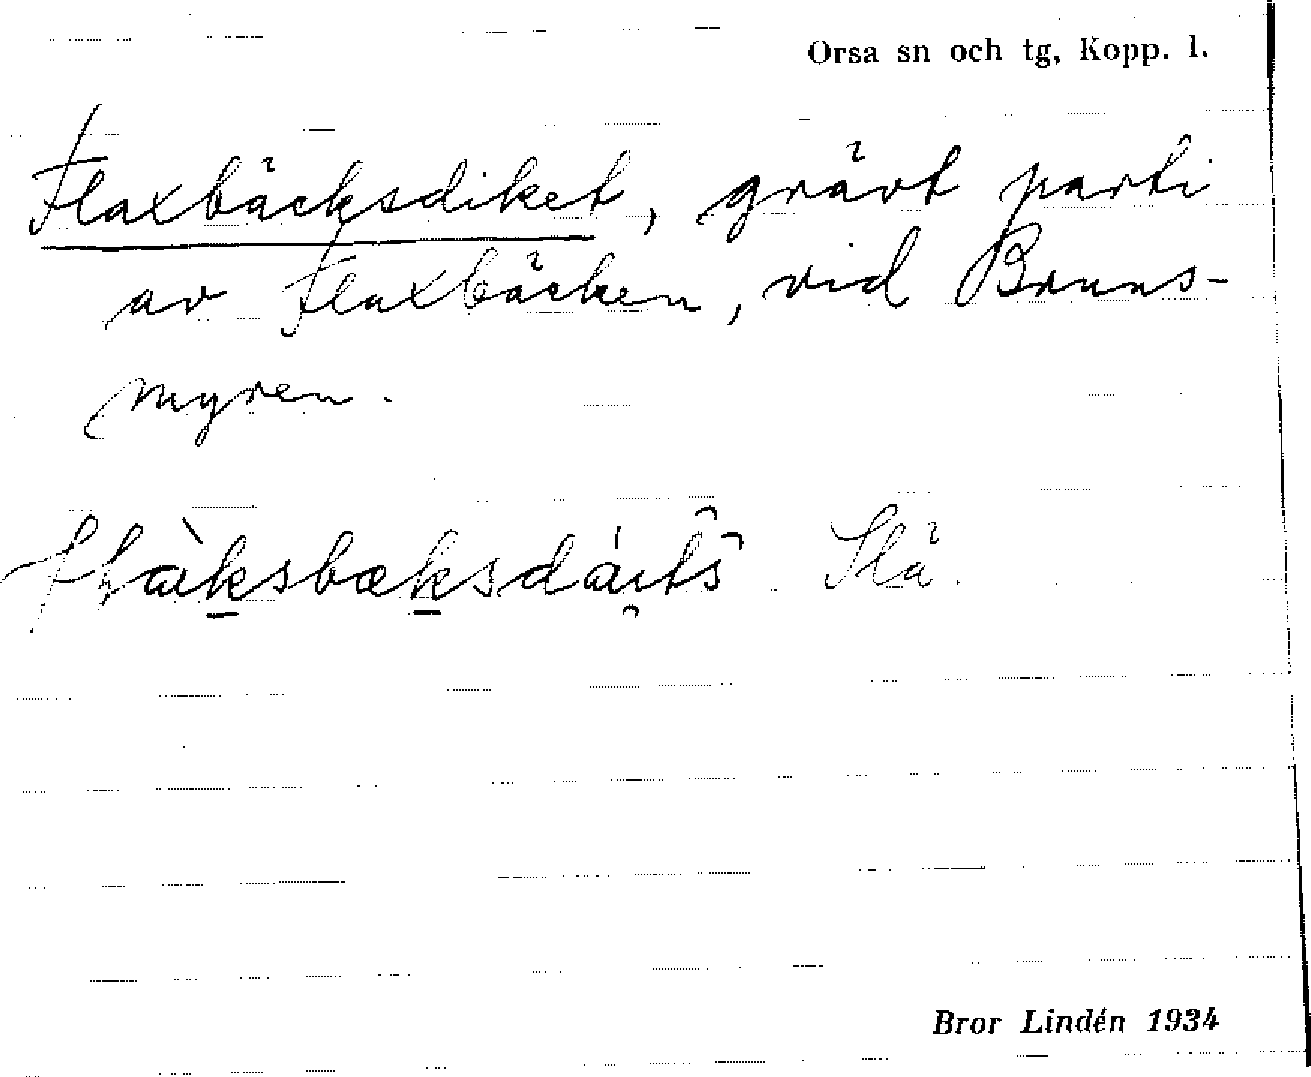 Orsa sn och tg, Kopp. l.
Flaxbäcksdiket, grävt parti
av Flaxbäcken, vid Bruns-
myren.
Slä.
Bror Lindén 1934